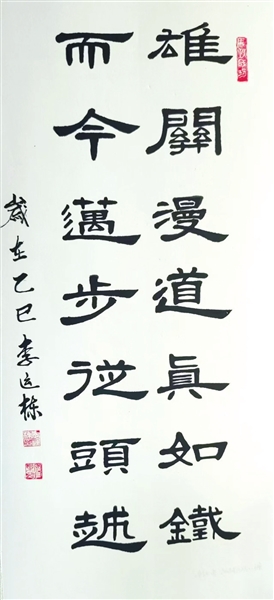 雄關漫道真如鐵
而今邁步從頭越
歲在乙巳李运栋